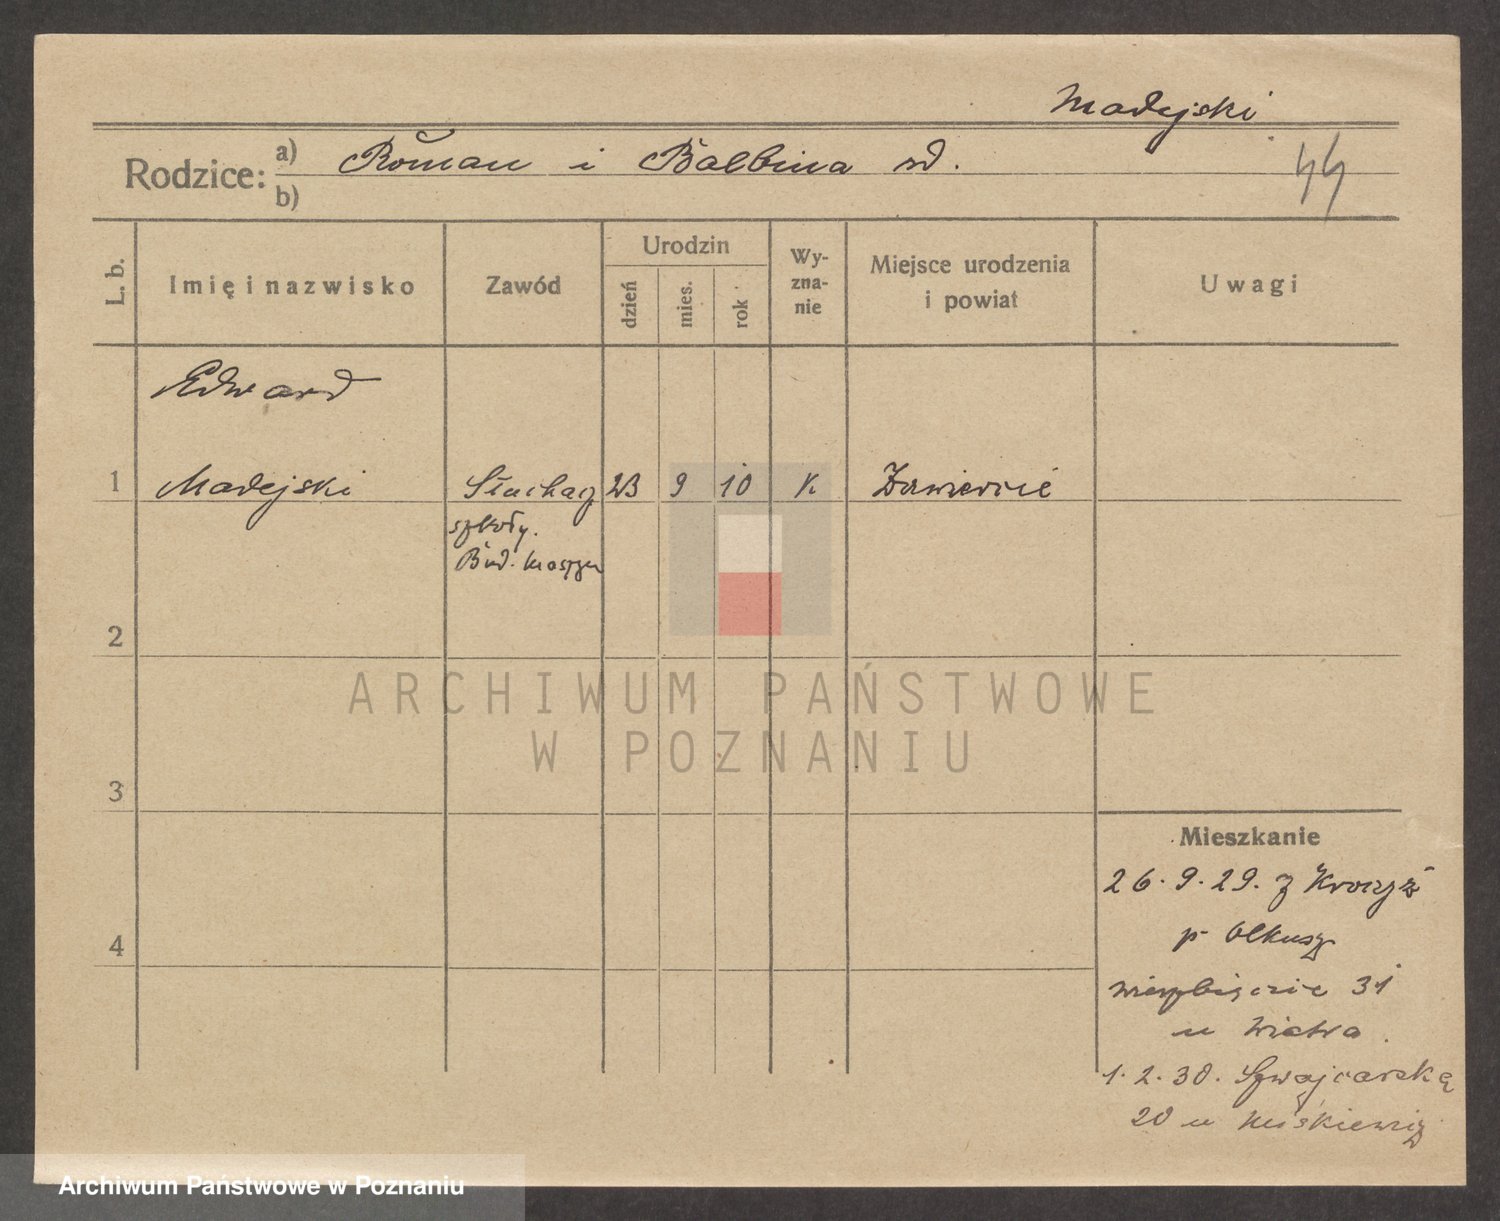 Madejski
Rodzice: a) Roman i Balbina
b)
44
L. b.
Imię i nazwisko
Zawód
Urodzin
dzień
mies.
rok
Wy-
zna-
nie
Miejsce urodzenia
i powiat
Uwagi
Edward
1 Madejski Słuchacz 23 9 10 K Zawiercie
szkoły.
Bud. maszyn
2
3
4
Mieszkanie
26.9.29. z
p Olkusz
Wierzbięcice 31
u Wiatra
1.2.30. Szwajcarska
20 u
ARCHIWUM PAŃSTWOWE
W POZNANIU
Archiwum Państwowe w Poznaniu